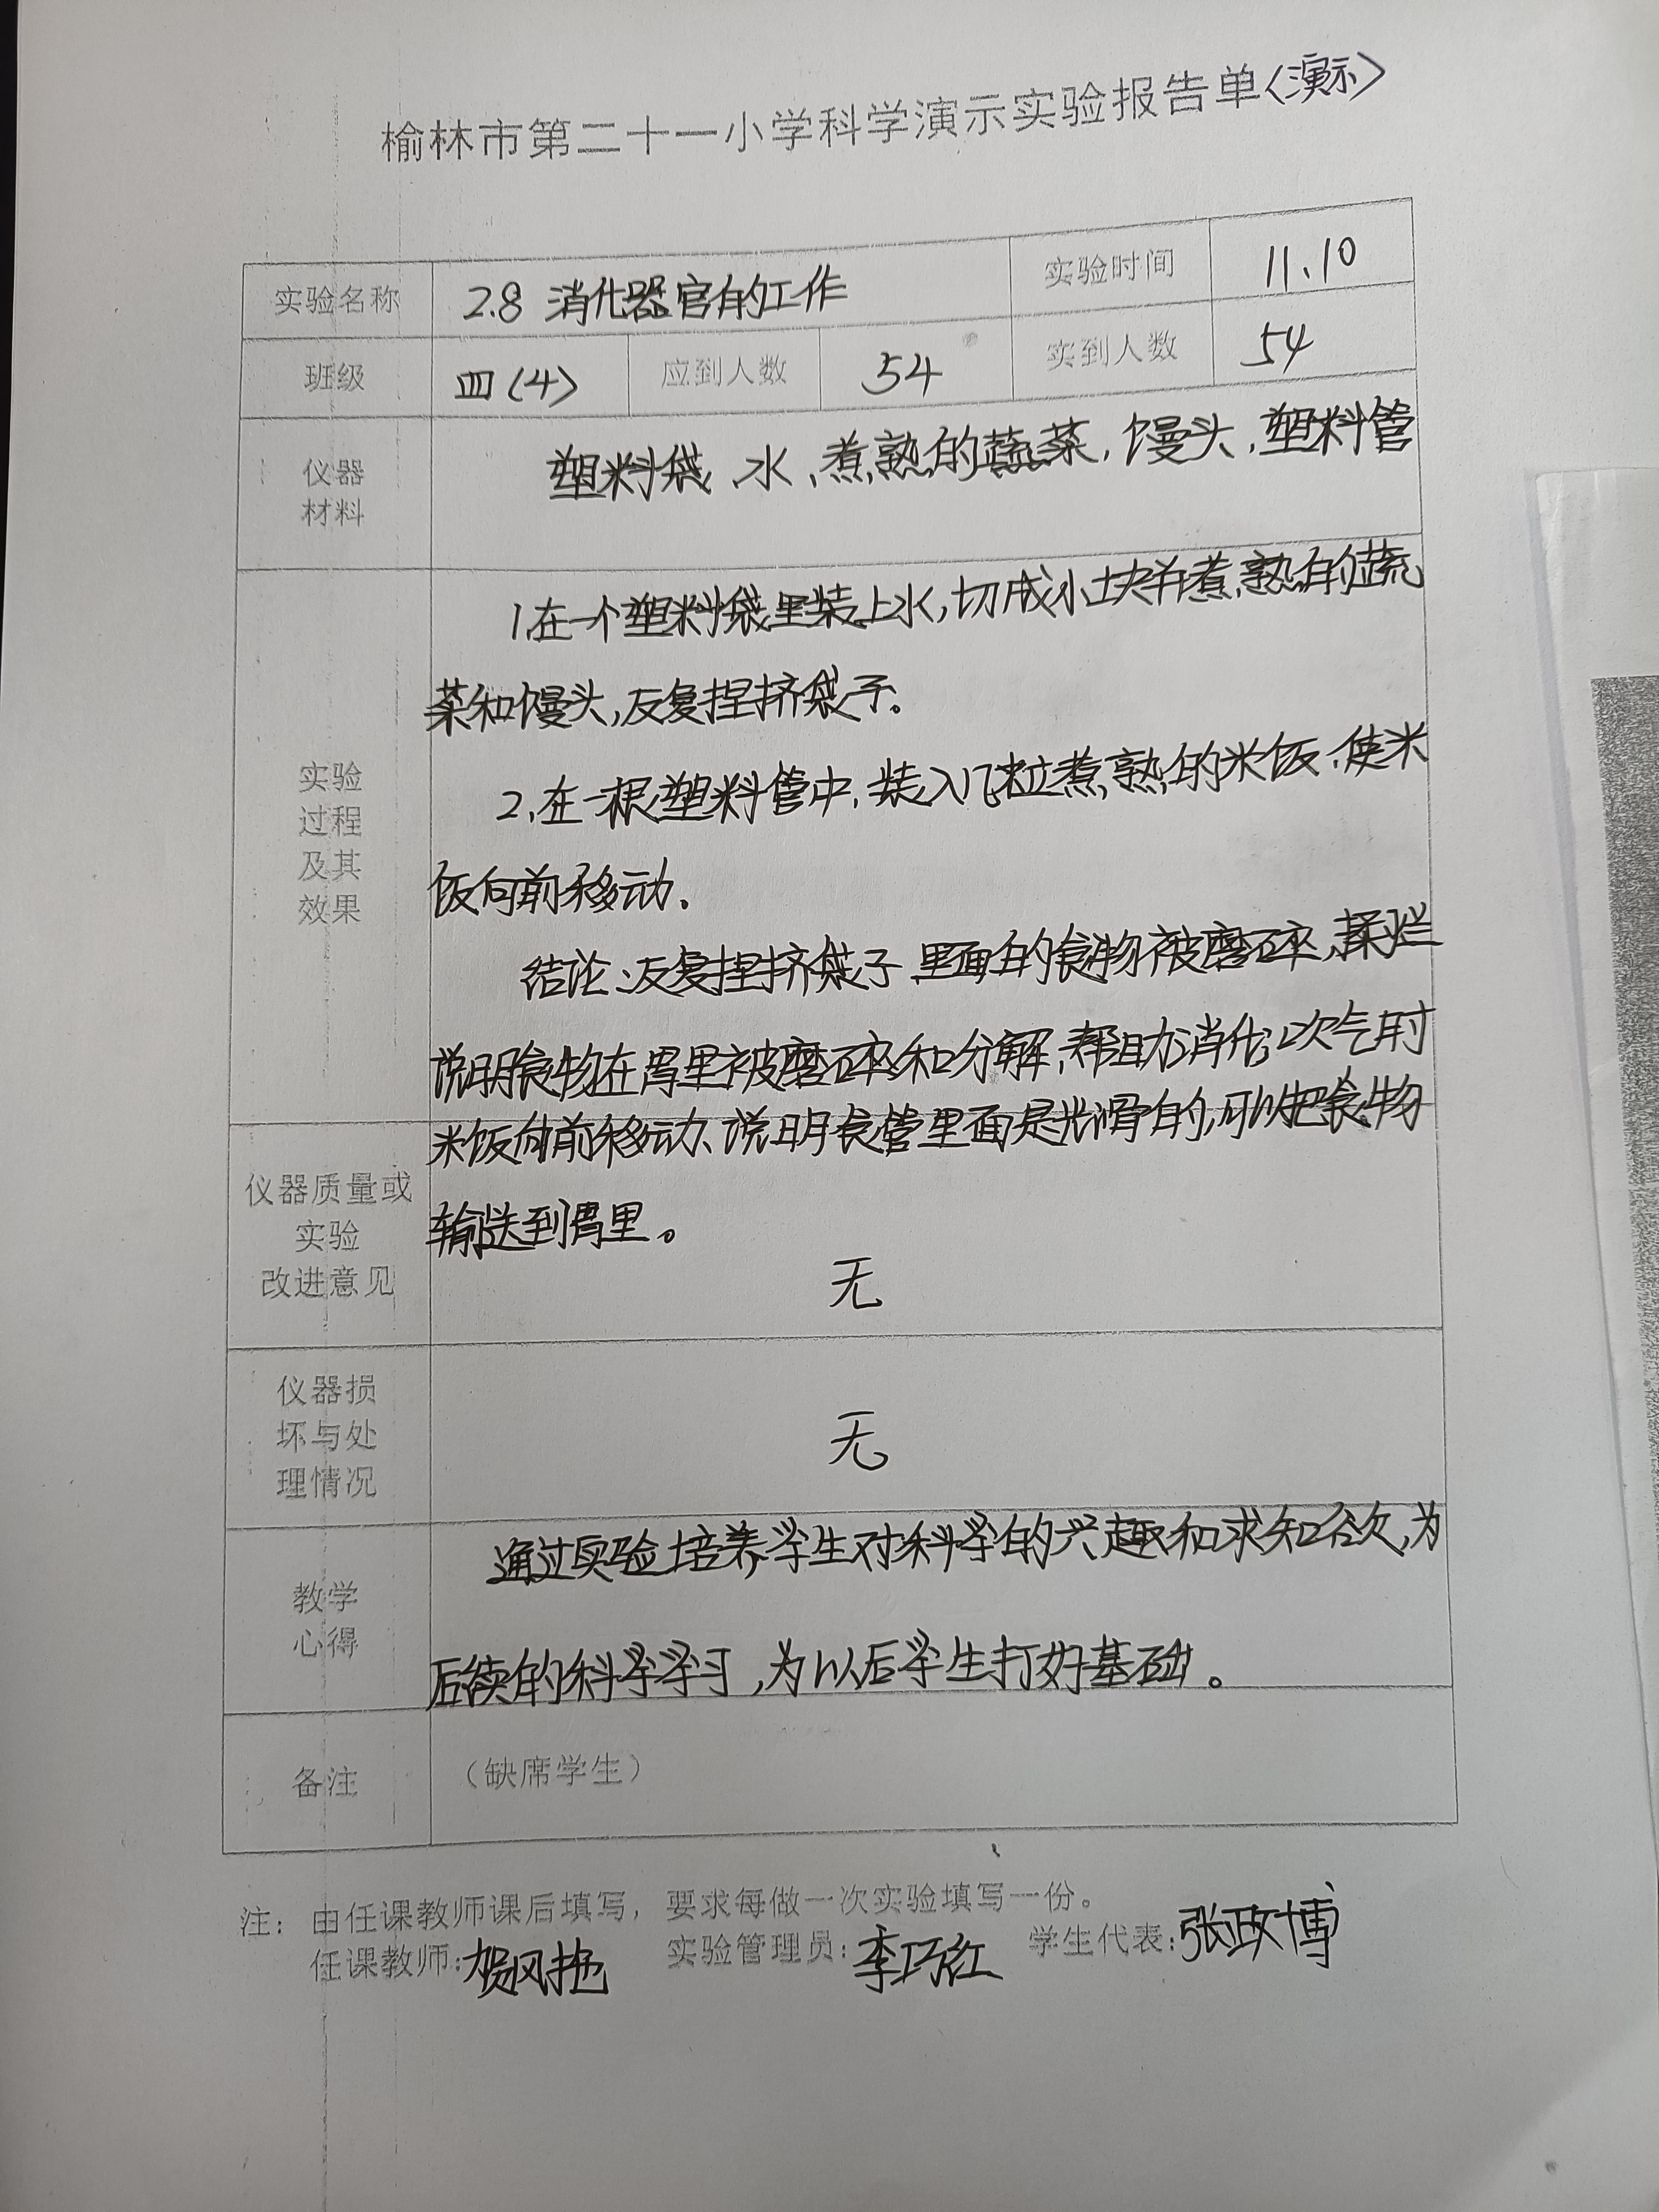 榆林市第二十一小学科学演示实验报告单〈演示〉
实验名称 2.8 消化器官的工作 实验时间 11.10
班级 四(4) 应到人数 54 实到人数 54
仪器
材料
塑料袋、水、煮熟的蔬菜,馒头,塑料管
实验
过程
及其
效果
1.在一个塑料袋里装上水,切成小块并煮熟的蔬
菜和馒头,反复捏挤袋子。
2.在一根塑料管中,装入几粒煮熟的米饭,使米
饭向前移动.
结论:反复捏挤袋子 里面的食物被磨碎,揉烂
说明食物在胃里被磨碎和分解,帮助消化;吹气时
米饭向前移动、说明食管里面是光滑的,可以把食物
输送到胃里。
仪器质量或
实验
改进意见
无
仪器损
坏与处
理情况
无
教学
心得
通过实验培养学生对科学的兴趣和求知欲,为
后续的科学学习,为以后学生打好基础。
备注
(缺席学生)
注: 由任课教师课后填写,要求每做一次实验填写一份。
任课教师:贺风艳 实验管理员:李巧红 学生代表:张政博